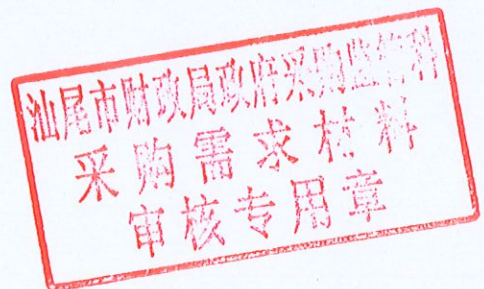 汕尾市财政局政府采购监管科
采购需求材料
审核专用章